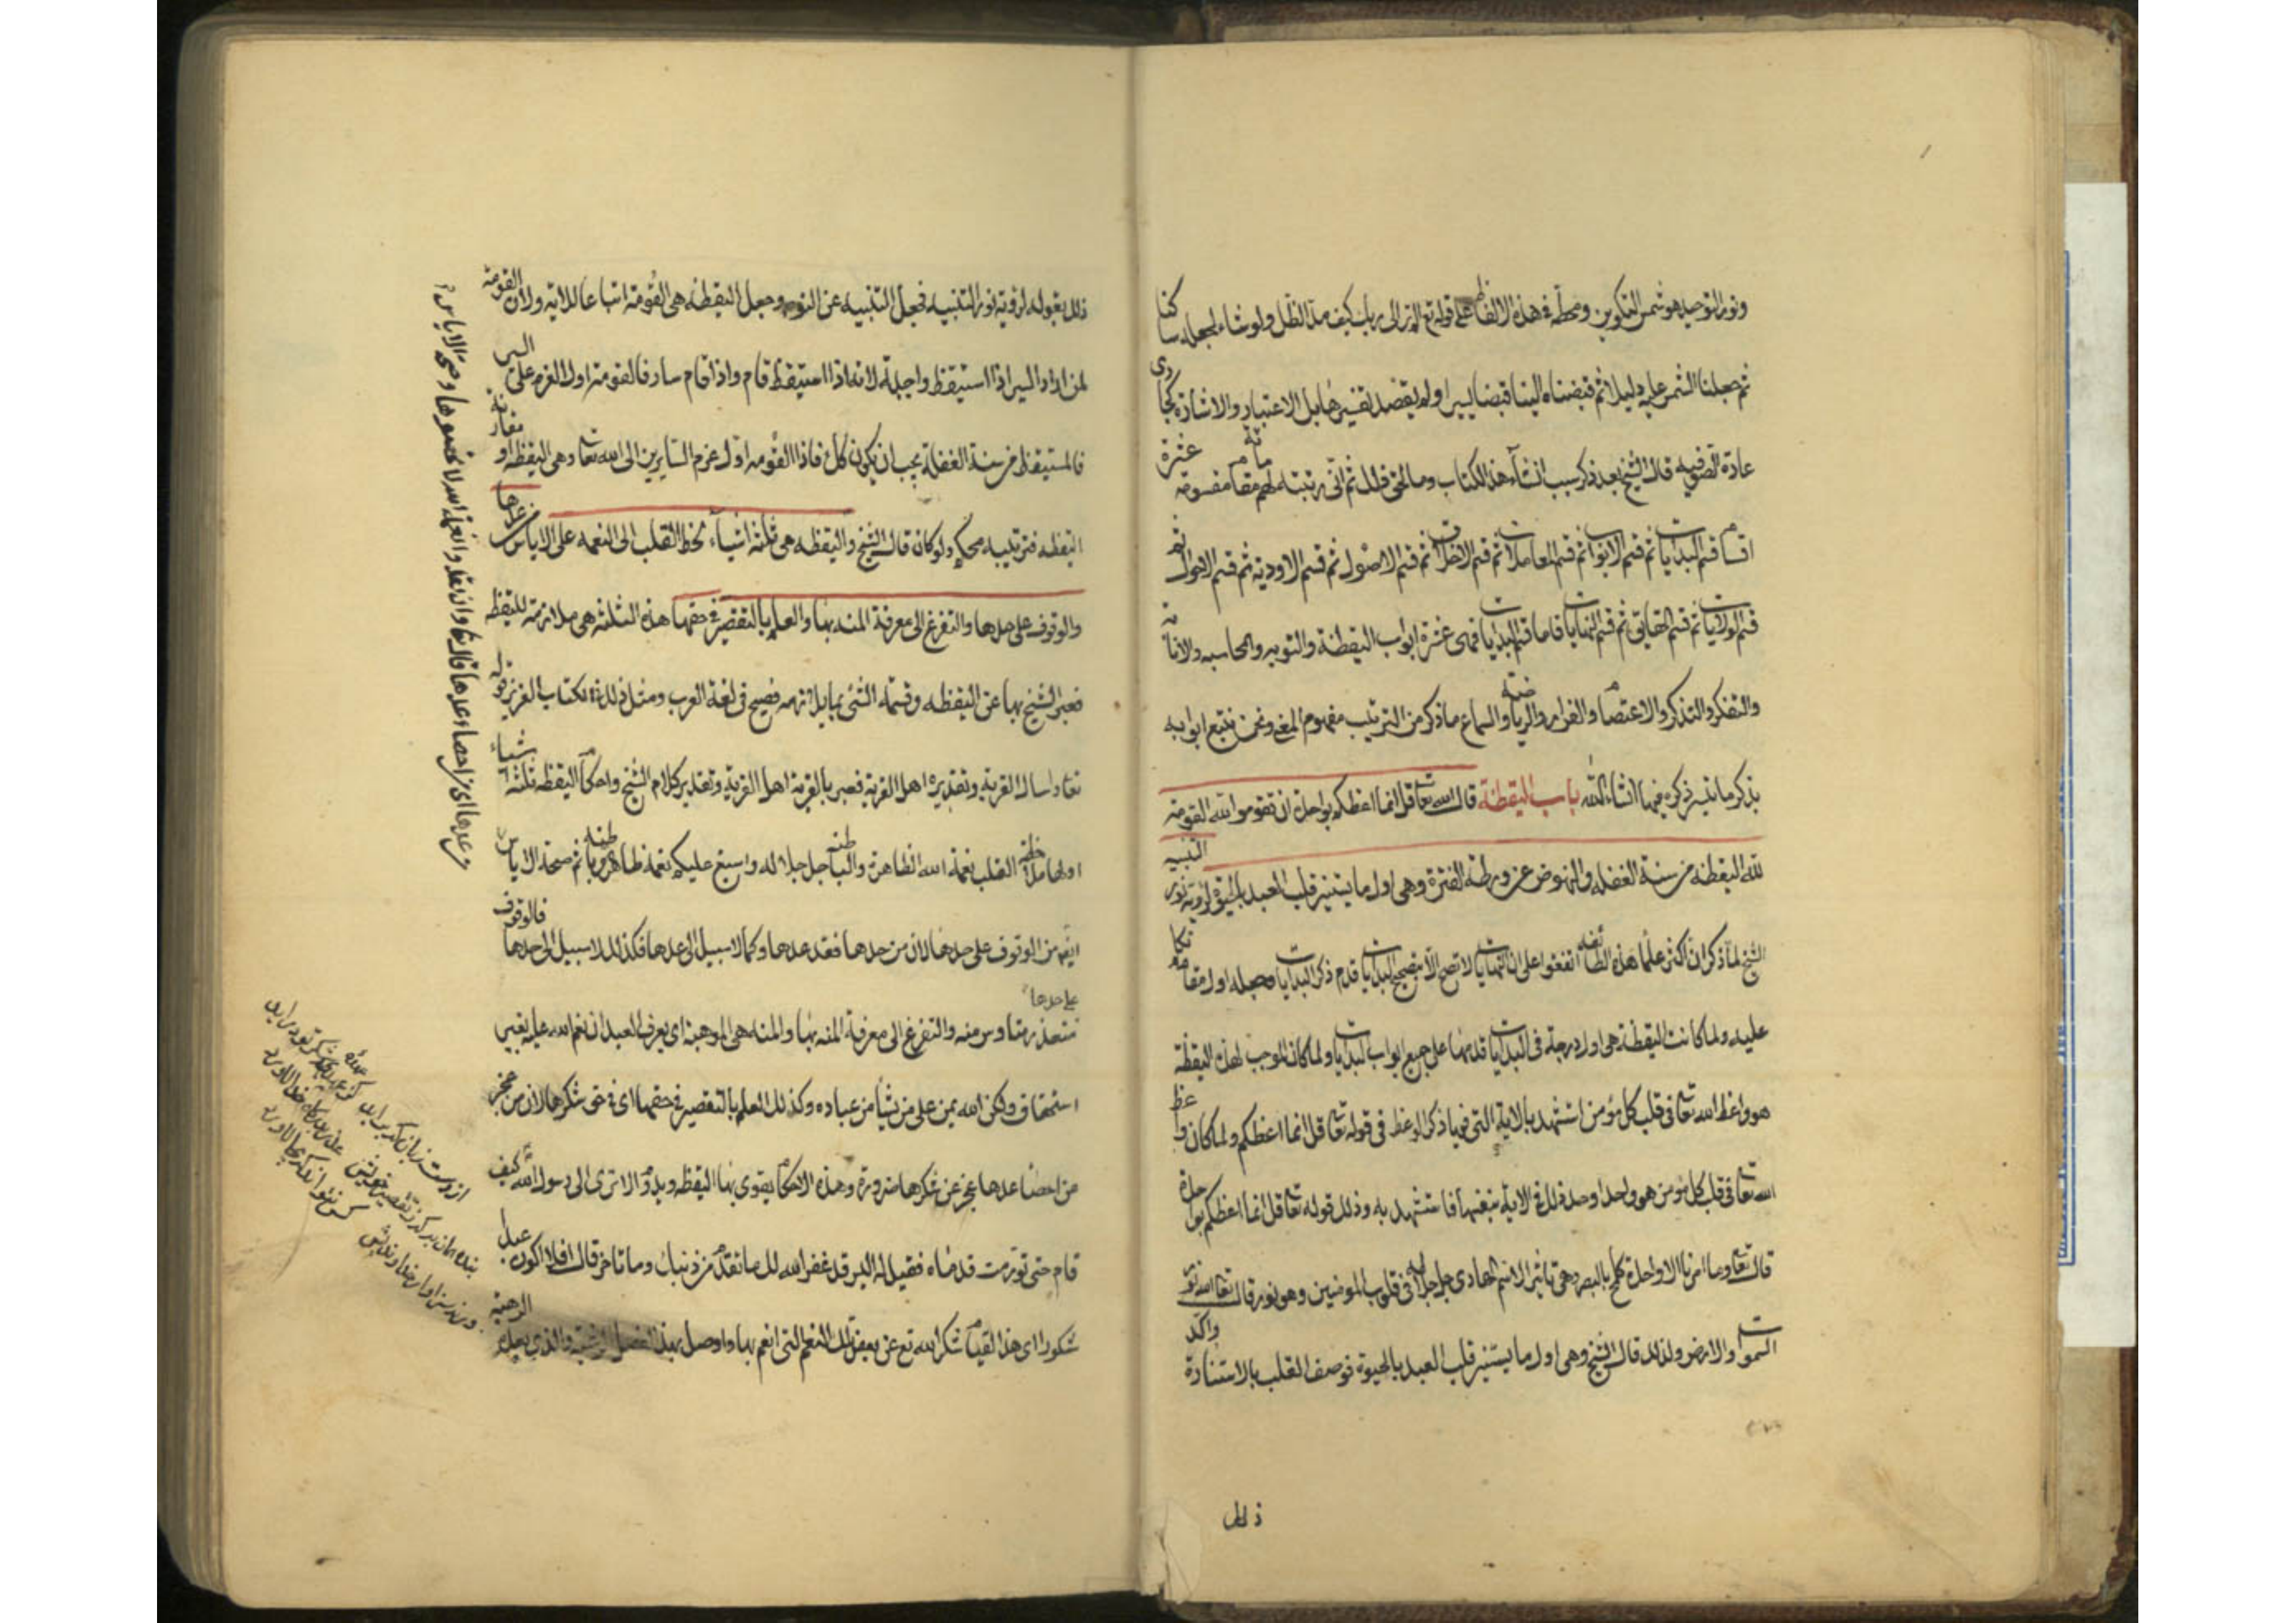 ونور التوحيد هو شمس التكوين ومحطّه في هذه الالفاظ على قوله تع الم تر الى ربك كيف مدّ الظّل ولو شاء لجعله ساكنا
ثم جعلنا الشمس عليه دليلا ثم قبضناه الينا قبضا يسيرا ولم يقصد تفسيرها بل الاعتبار والاشارة كجاري
عادة الصّوفيه قال الشيخ بعد ذكر سبب انشاء هذا الكتاب وما لحق ذلك ثم انّي رتبته لهم مائة مقام مقسومة عشرة
اقسام قسم البدايات ثم قسم الابواب ثم قسم المعاملات ثم قسم الاخلاق ثم قسم الاصول ثم قسم الاودية ثم قسم الاحوال ثم
قسم الولايات ثم قسم الحقايق ثم قسم النهايات فاما قسم البدايات فهى عشرة ابواب اليقظة والتوبه والمحاسبه والانابة
والتفكر والتذكر والاعتصام والفرار والرياضة والسماع ما ذكر من الترتيب مفهوم المعنى ونحن نتبع ابوابه
بذكر ما تيسر ذكره فيها انشاء اللّه باب اليقظة قال الله تعا قل انما اعظكم بواحدة ان تقوموا لله القومة
لله اليقظه من سنة الغفله والنهوض عن ورطة الفترة وهى اول ما يستنير قلب العبد بالحيوة لرؤية نور التنبيه
الشيخ لما ذكر ان اكثر علماء هذه الطائفه اتفقوا على ان النهايات لا تصح الا بتصحيح البدايات قدم ذكر البدايات وجعله اول مقام تكا
عليه ولما كانت اليقظة هى اول درجة فى البدايات قدمها على جميع ابواب البدايات ولما كان الموجب لهذه اليقظة
هو واعظ الله تعا فى قلب كل مؤمن استشهد بالاية التى فيها ذكر الوعظ فى قوله تعا قل انما اعظكم ولما كان واعظ
الله تعا فى قلب كل مؤمن هو واحدا وجد ذلك في الاية بعينها فاستشهد به وذلك قوله تعا قل انما اعظكم بواحدة
قال تعا وما امرنا الا واحدة كلمح بالبصر وهى تاثير الاسم الهادى جل جلاله فى قلوب المومنين وهو نور قال تعا الله نور
السموات والارض ولذلك قال الشيخ وهى اول ما يستنير قلب العبد بالحيوة فوصف القلب بالاستنارة واكد
ذلك
ذلك بقوله لرؤية نور التنبيه فجعل التنبيه عن النوم وجعل اليقظة هى القومة اتباعا للاية ولان القومة
لمن اراد السير اذا استيقظ واجبة لانه اذا استيقظ قام واذا قام سار فالقومة اول العزم على السير
فالمستيقظ من سنة الغفلة يجب ان يكون كك فاذا القومه اول عزم السايرين الى الله تعا وهى اليقظه او مقارنة
اليقظه فترتيبه محكم ولو كان قال الشيخ واليقظه هى ثلثة اشياء لحظ القلب الى النعمه على الاياس من عدها
والوقوف على حدها والتفرغ الى معرفة المنة بها والعلم بالتقصير في حقها هذه الثلثه هى ملازمة لليقظه
فعبر الشيخ بها عن اليقظه وتسمية الشئ بما يلازمه فصيح فى لغة العرب ومثل ذلك في الكتاب العزيز قوله
تعا واسال القرية وتقديره اهل القرية فعبر بالقرية اهل القرية وتقدير كلام الشيخ واحكام اليقظه ثلثة اشياء
اولها ملاحظة القلب نعمة الله الظاهرة والباطنه جل جلاله واسبغ عليكم نعمه ظاهرة وباطنه ثم صحة الاياس
ايضا من الوقوف على حدها لان من حدها فقد عدها وكما لا سبيل الى عدها فكذلك لا سبيل الى حدها فالوقوف
على حدها
متعذر ميئوس منه والتفرغ الى معرفة المنه بها والمنه هى الموهبة اى يعرف العبد ان نعم الله عليه بغير
استحقاق ولكن الله يمن على من يشا من عباده وكذلك العلم بالتقصير في حقها اى في حق شكرها لان من عجز
عن احصاء عدها عجز عن شكرها ضرورة وهذه الاحكام يقوى بها اليقظه ويدوم الا ترى الى رسول الله كيف
قام حتى تورمت قدماه فقيل له اليس قد غفر الله لك ما تقدم من ذنبك وما تاخر قال افلا اكون عبدا
شكورا اى هذا القيام شكر الله تع عن بعض تلك النعم التى انعم بها
من عدها اى من احصاء عدها قال تعا وان تعدوا نعمة الله لا تحصوها
از دست و زبان كه برايد
كز عهده شكرش بدر ايد
بنده همان به كه ز تقصير خويش
عذر بدرگاه خدا اورد
ورنه سزاوار خداونديش
كس نتواند كه بجا اورد